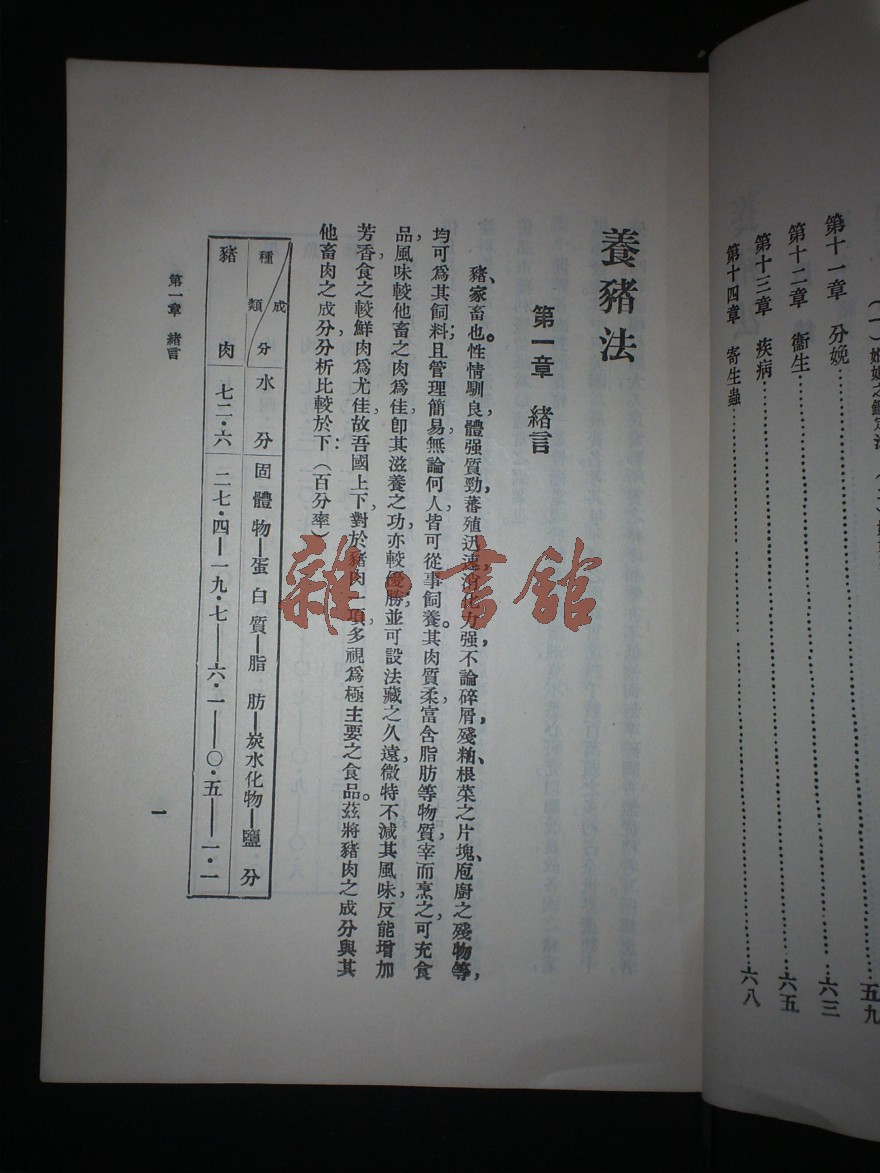 第十一章 分娩……六三
第十二章 衞生……六五
第十三章 疾病……六八
第十四章 寄生蟲……
五九
養豬法
第一章 緒言
豬、家畜也。性情馴良，體强質勁，蕃殖迅速，消化力强，不論碎屑殘粬、根菜之片塊、庖廚之殘物等，
均可爲其飼料；且管理簡易，無論何人皆可從事飼養。其肉質柔，富含脂肪等物質，宰而烹之，可充食
品，風味較他畜之肉爲佳，卽其滋養之功，亦較優勝；並可設法藏之久遠，微特不減其風味，反能增加
芳香，食之較鮮肉爲尤佳，故吾國上下，對於豬肉一項，多視爲極主要之食品。茲將豬肉之成分與其
他畜肉之成分分析比較於下：（百分率）
成分 種類 水分 固體物—蛋白質—脂肪—炭水化物—鹽分
豬肉 七二·六 二七·四—一九·七—六·一—〇·五—一·一
第一章 緒言
一
雜·書館